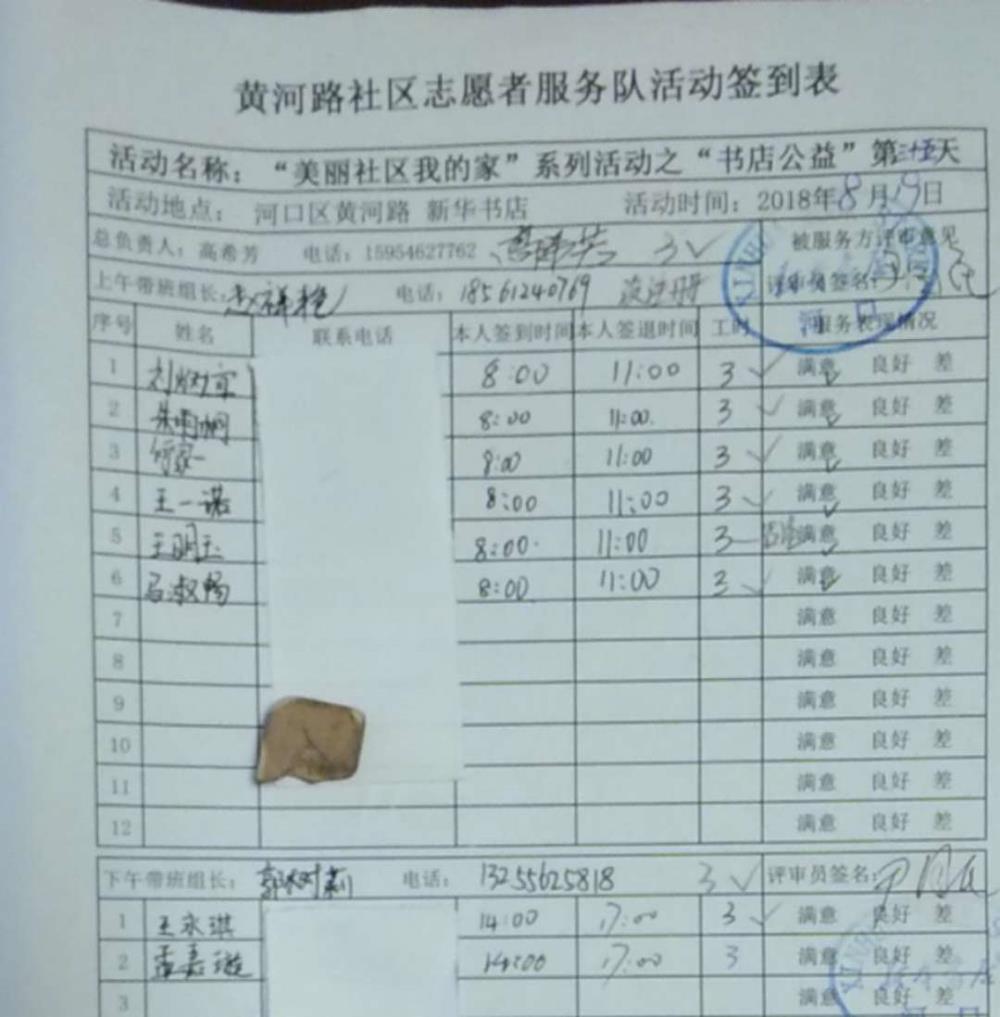 黄河路社区志愿者服务队活动签到表
活动名称：“美丽社区我的家”系列活动之“书店公益”第三十五天
活动地点： 河口区黄河路 新华书店 活动时间：2018年8月19日
总负责人：高希芳 电话：15954627762 3✓ 被服务方评审意见
上午带班组长： 电话：18561240769 没注册 评审员签名：
序号 姓名 联系电话 本人签到时间 本人签退时间 工时 服务表现情况
1 8:00 11:00 3 ✓ 满意 良好 差
2 8:00 11:00. 3 ✓ 满意 良好 差
3 8:00 11:00 3 ✓ 满意 良好 差
4 王一诺 8:00 11:00 3 ✓ 满意 良好 差
5 王明玉 8:00. 11:00 3 满意 良好 差
6 马淑畅 8:00 11:00 3 ✓ 满意 良好 差
7 满意 良好 差
8 满意 良好 差
9 满意 良好 差
10 满意 良好 差
11 满意 良好 差
12 满意 良好 差
下午带班组长： 电话：13255625818 3 ✓ 评审员签名：
1 王永琪 14:00 17:00 3 ✓ 满意 良好 差
2 孟嘉璇 14:00 17:00 3 满意 良好 差
3 满意 良好 差